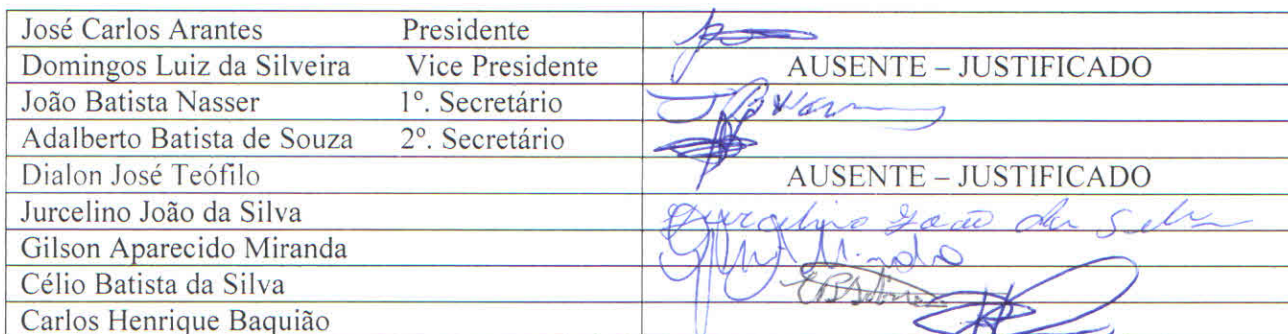 José Carlos Arantes Presidente
Domingos Luiz da Silveira Vice Presidente AUSENTE – JUSTIFICADO
João Batista Nasser 1º. Secretário
Adalberto Batista de Souza 2º. Secretário
Dialon José Teófilo AUSENTE – JUSTIFICADO
Jurcelino João da Silva Jurcelino João da Silva
Gilson Aparecido Miranda
Célio Batista da Silva
Carlos Henrique Baquião